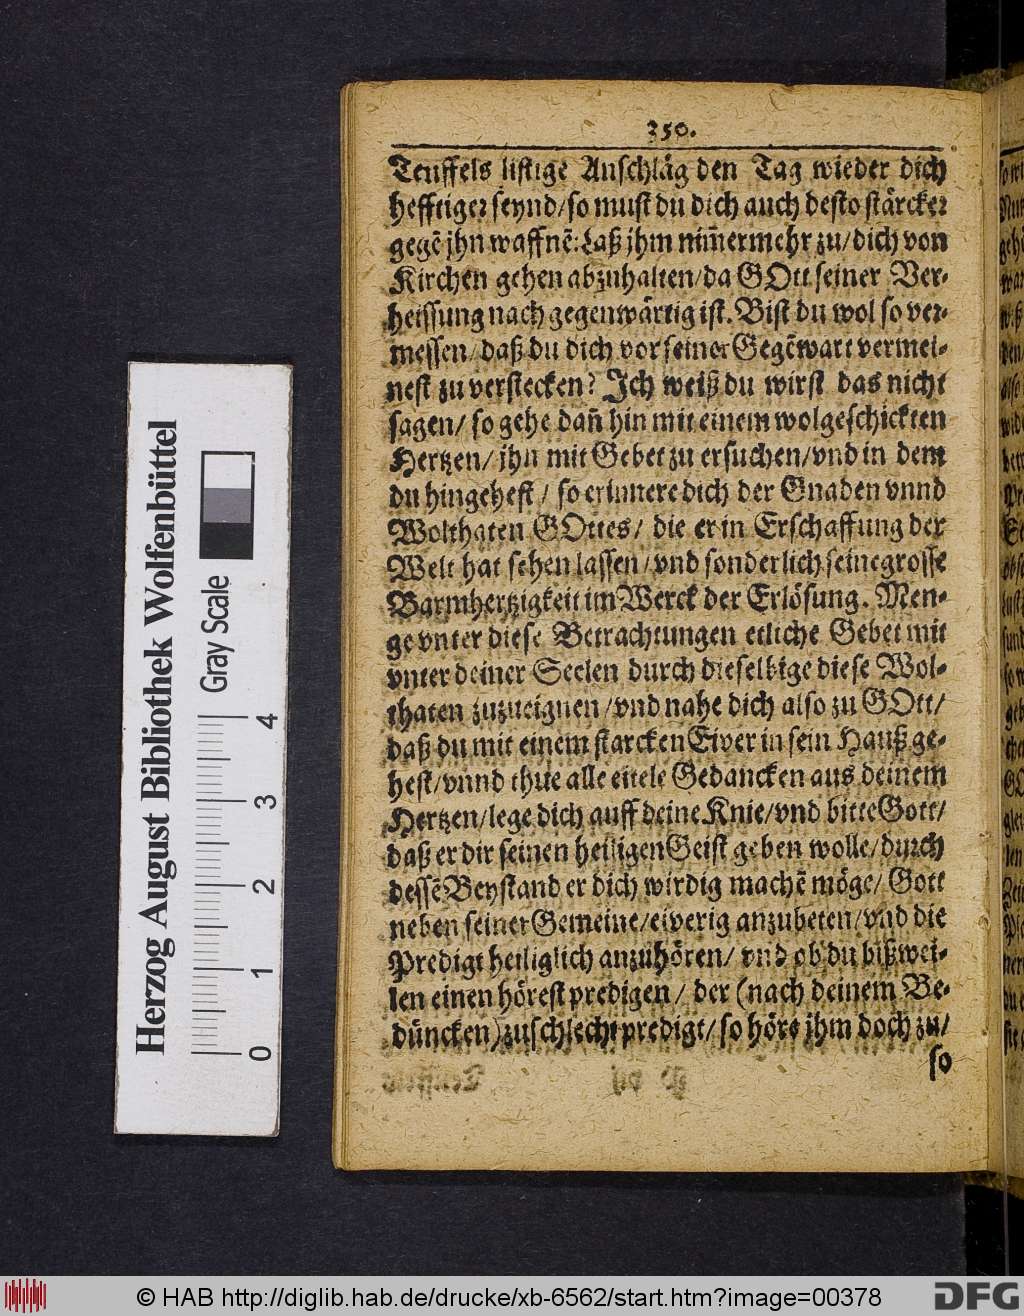 350.
Teuffels listige Anschläg den Tag wieder dich
hefftiger seynd/so must du dich auch desto stärcker
gegē jhn waffnē: Laß jhm nim̄ermehr zu/dich von
Kirchen gehen abzuhalten/da GOtt seiner Ver-
heissung nach gegenwärtig ist. Bist du wol so ver-
messen/daß du dich vor seiner Gegēwart vermei-
nest zu verstecken? Ich weiß du wirst das nicht
sagen/ so gehe dañ hin mit einem wolgeschickten
Hertzen/ jhn mit Gebet zu ersuchen/vnd in dem
du hingehest/ so erinnere dich der Gnaden vnnd
Wolthaten GOttes/ die er in Erschaffung der
Welt hat sehen lassen/vnd sonderlich seine grosse
Barmhertzigkeit im Werck der Erlösung. Men-
ge vnter diese Betrachtungen etliche Gebet mit
vnter deiner Seelen durch dieselbige diese Wol-
thaten zuzueignen/vnd nahe dich also zu GOtt/
daß du mit einem starcken Eiver in sein Hauß ge-
hest/vnnd thue alle eitele Gedancken aus deinem
Hertzen/lege dich auff deine Knie/vnd bitte Gott/
daß er dir seinen heiligen Geist geben wolle/durch
dessē Beystand er dich wirdig machē möge/ Gott
neben seiner Gemeine/eiverig anzubeten/vnd die
Predigt heiliglich anzuhören/ vnd ob du bißwei-
len einen hörest predigen/ der (nach deinem Be-
düncken) zu schlecht predigt/ so höre jhm doch zu/
so
Herzog August Bibliothek Wolfenbüttel
Gray Scale
0 1 2 3 4
© HAB http://diglib.hab.de/drucke/xb-6562/start.htm?image=00378
DFG